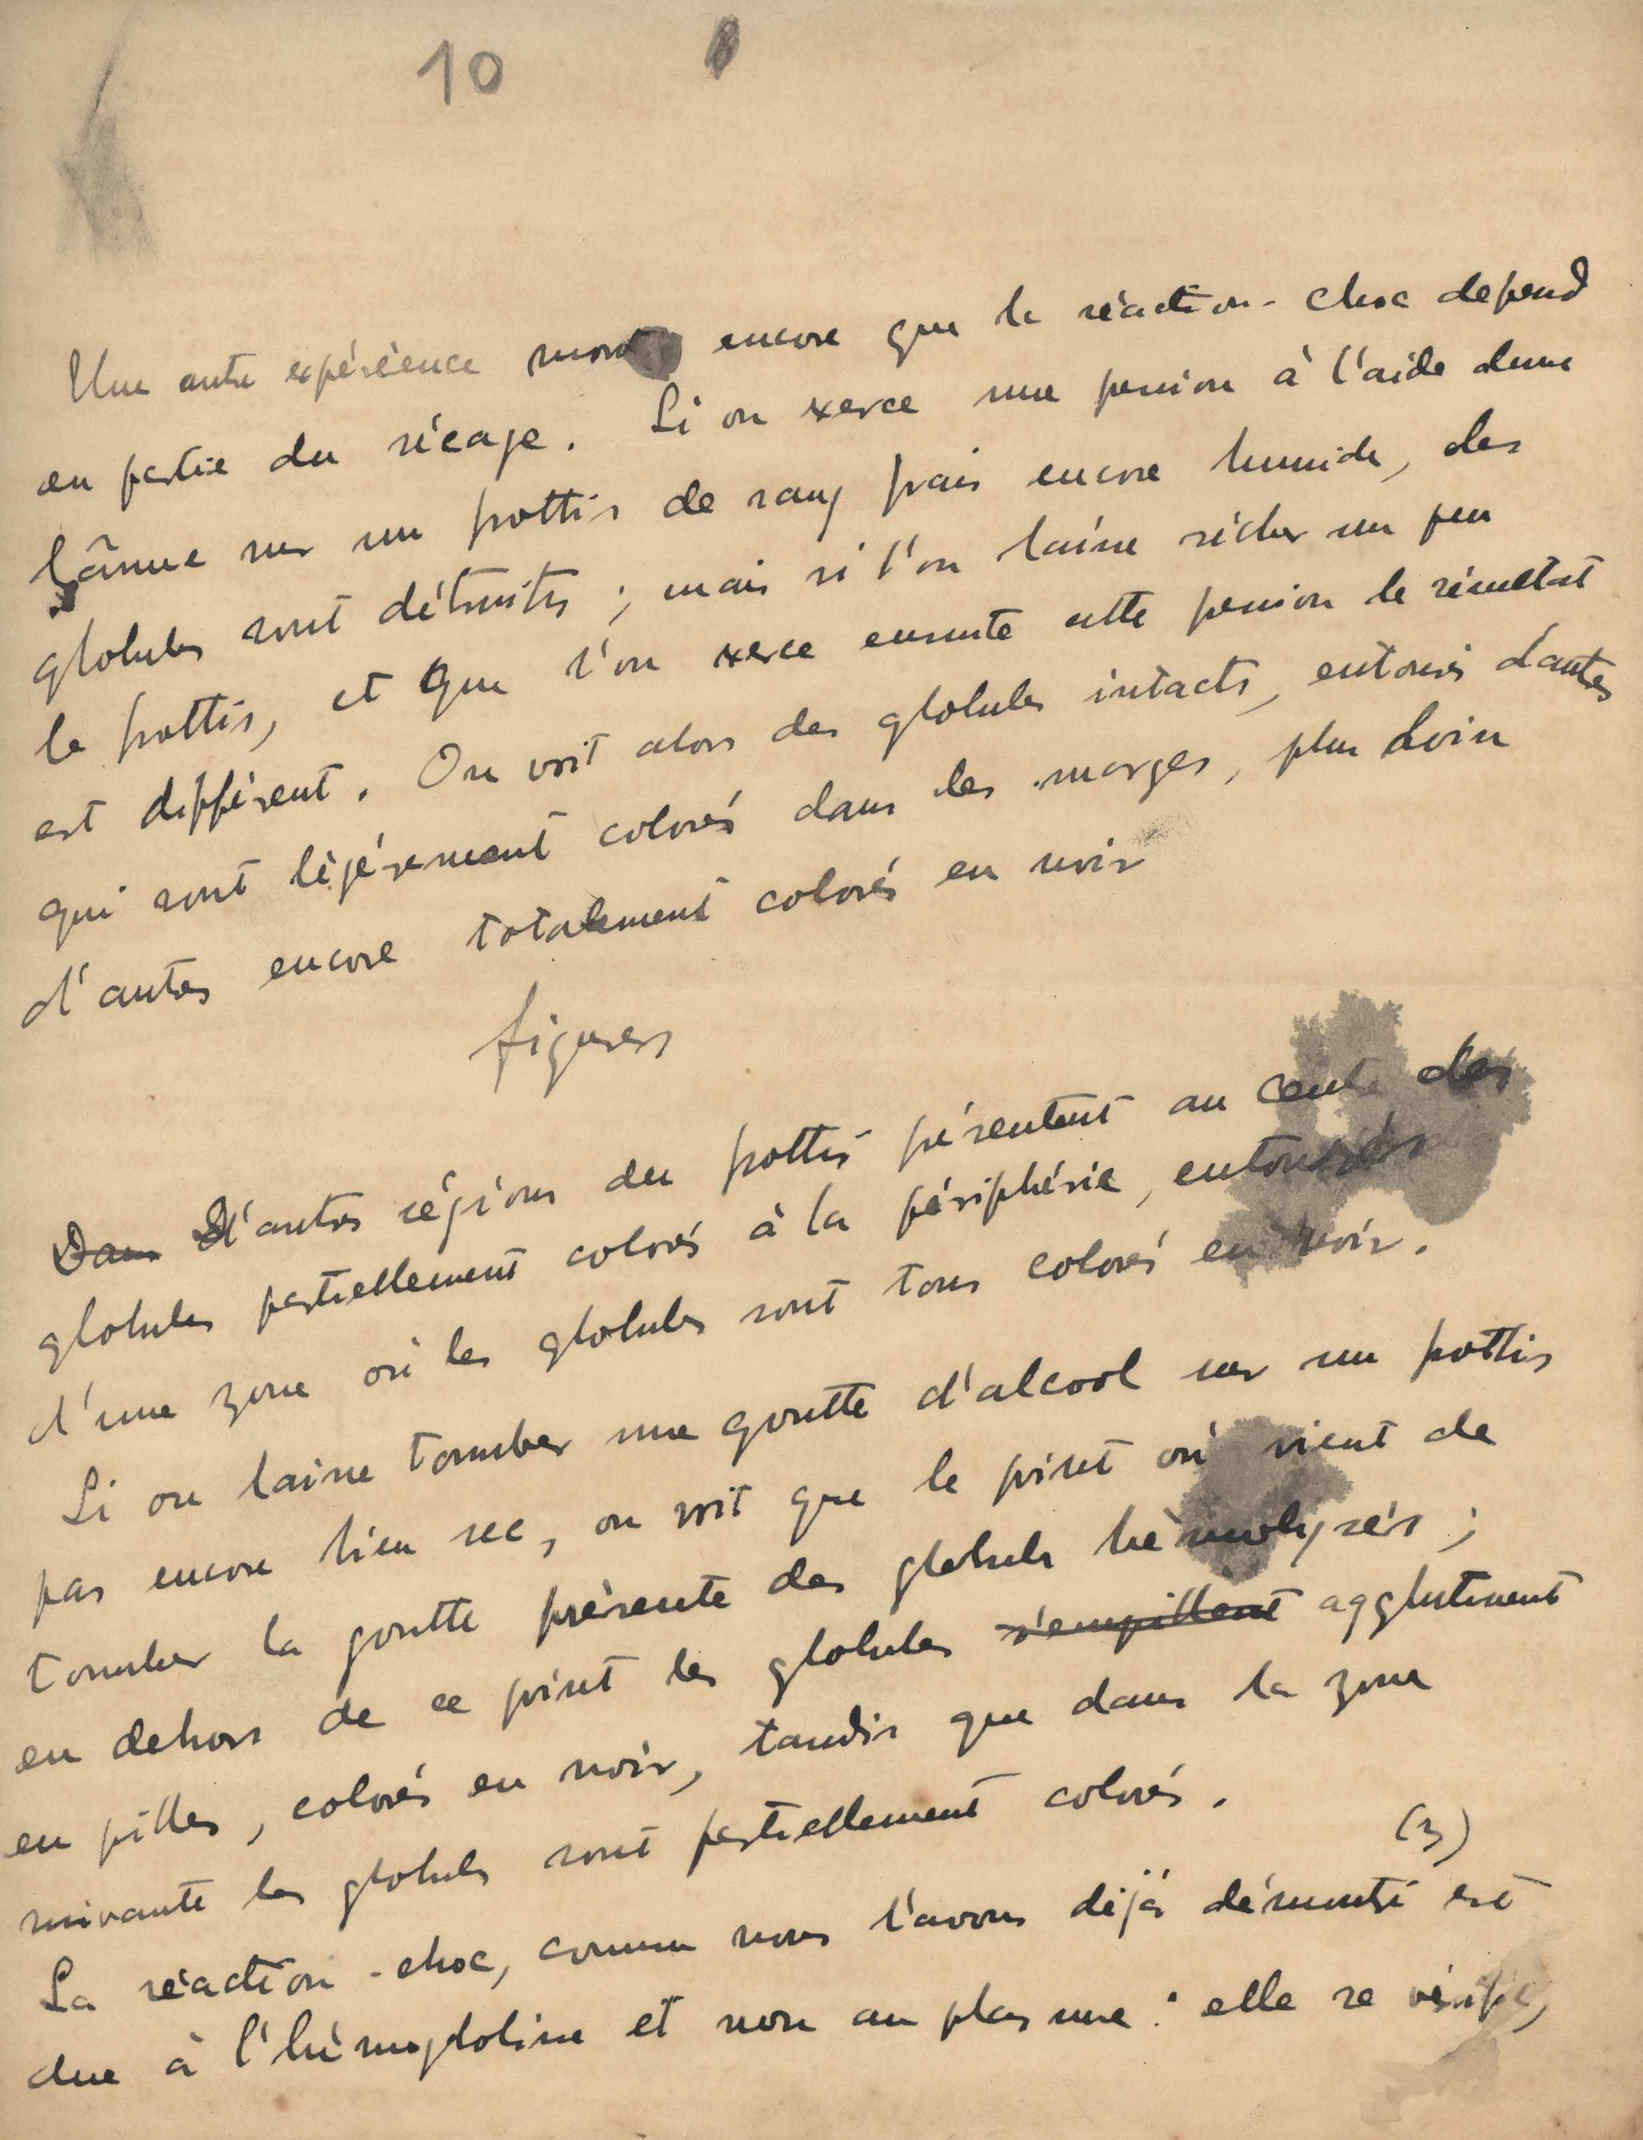 10
Une autre expérience montre encore que la réaction-choc dépend
en partie du sécage. Si on exerce une pression à l'aide d'une
lâmme sur un frottis de sang frais encore humide, des
globules sont détruits ; mais si l'on laisse sécher un peu
le frottis, et que l'on exerce ensuite cette pression le résultat
est différent. On voit alors des globules intacts, entourés d'autres
qui sont légérement colorés dans les marges, plus loin
d'autres encore totalement colorés en noir
figures
Dans D'autres régions du frottis présentent au centre des
globules partiellement colorés à la périphérie, entourés
d'une zone où les globules sont tous colorés en noir.
Si on laisse tomber une goutte d'alcool sur un frottis
pas encore bien sec, on voit que le point où vient de
tomber la goutte présente des globules hémolysés ;
en dehors de ce point les globules s'empillent agglutinent
en pilles, colorés en noir, tandis que dans la zone
suivante les globules sont partiellement colorés.
(3)
La réaction-choc, comme nous l'avons déjà démontré est
due à l'hémoglobine et non au plasme : elle se vérifie,